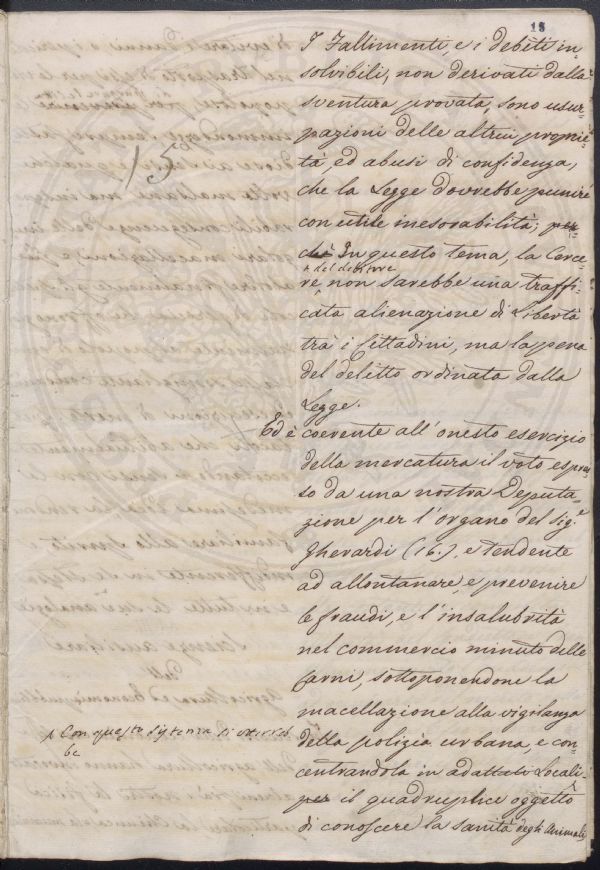 18
I Fallimenti, e i debiti in-
solvibili, non derivati dalla
sventura provata, sono usur-
pazioni delle altrui proprie-
tà, ed abusi di confidenza,
che la Legge dovrebbe punire
con utile inesorabilità; per-
chè In questo tema, la Carce-
del debitore
re non sarebbe una traffi-
cata alienazione di Libertà
trà i Cittadini, ma la pena
del delitto ordinata dalla
Legge.
Ed è coerente all'onesto esercizio
della mercatura il voto espres-
so da una nostra Deputa-
zione per l'organo del Sig.r
Gherardi (16.), e tendente
ad allontanare, e prevenire
le fraudi, e l'insalubrità
nel commercio minuto delle
Carni, sottoponendone la
macellazione alla vigilanza
della polizia urbana, e con-
centrandola in adattati Locali
per il quadruplice oggetto
di conoscere la sanità degli Animali,
15
Con questo sistema si
be